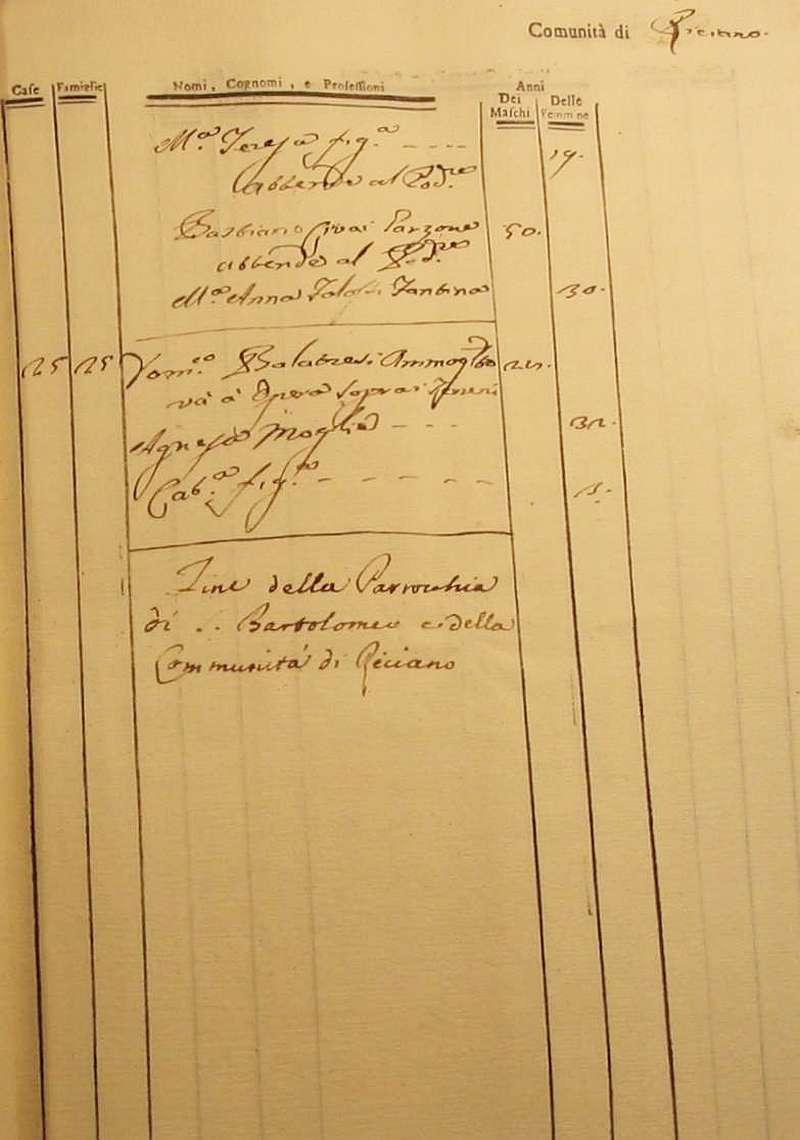 Comunità di Riciano.
Case Famiglie Nomi, Cognomi, e Professioni Anni
Dei Maschi Delle Femmine
M.ª Teresa fig.ª 19.
attende al Pod.re
Garzone 50.
attende al Pod.re
M.ª Anna Fantina 30.
25 25 Dom.co Ammog.to
và à Opera sopra i
Agnese Moglie
Cat.ª fig.ª
Fine della Parrochia
di S. Bartolomeo e della
Communità di Riciano